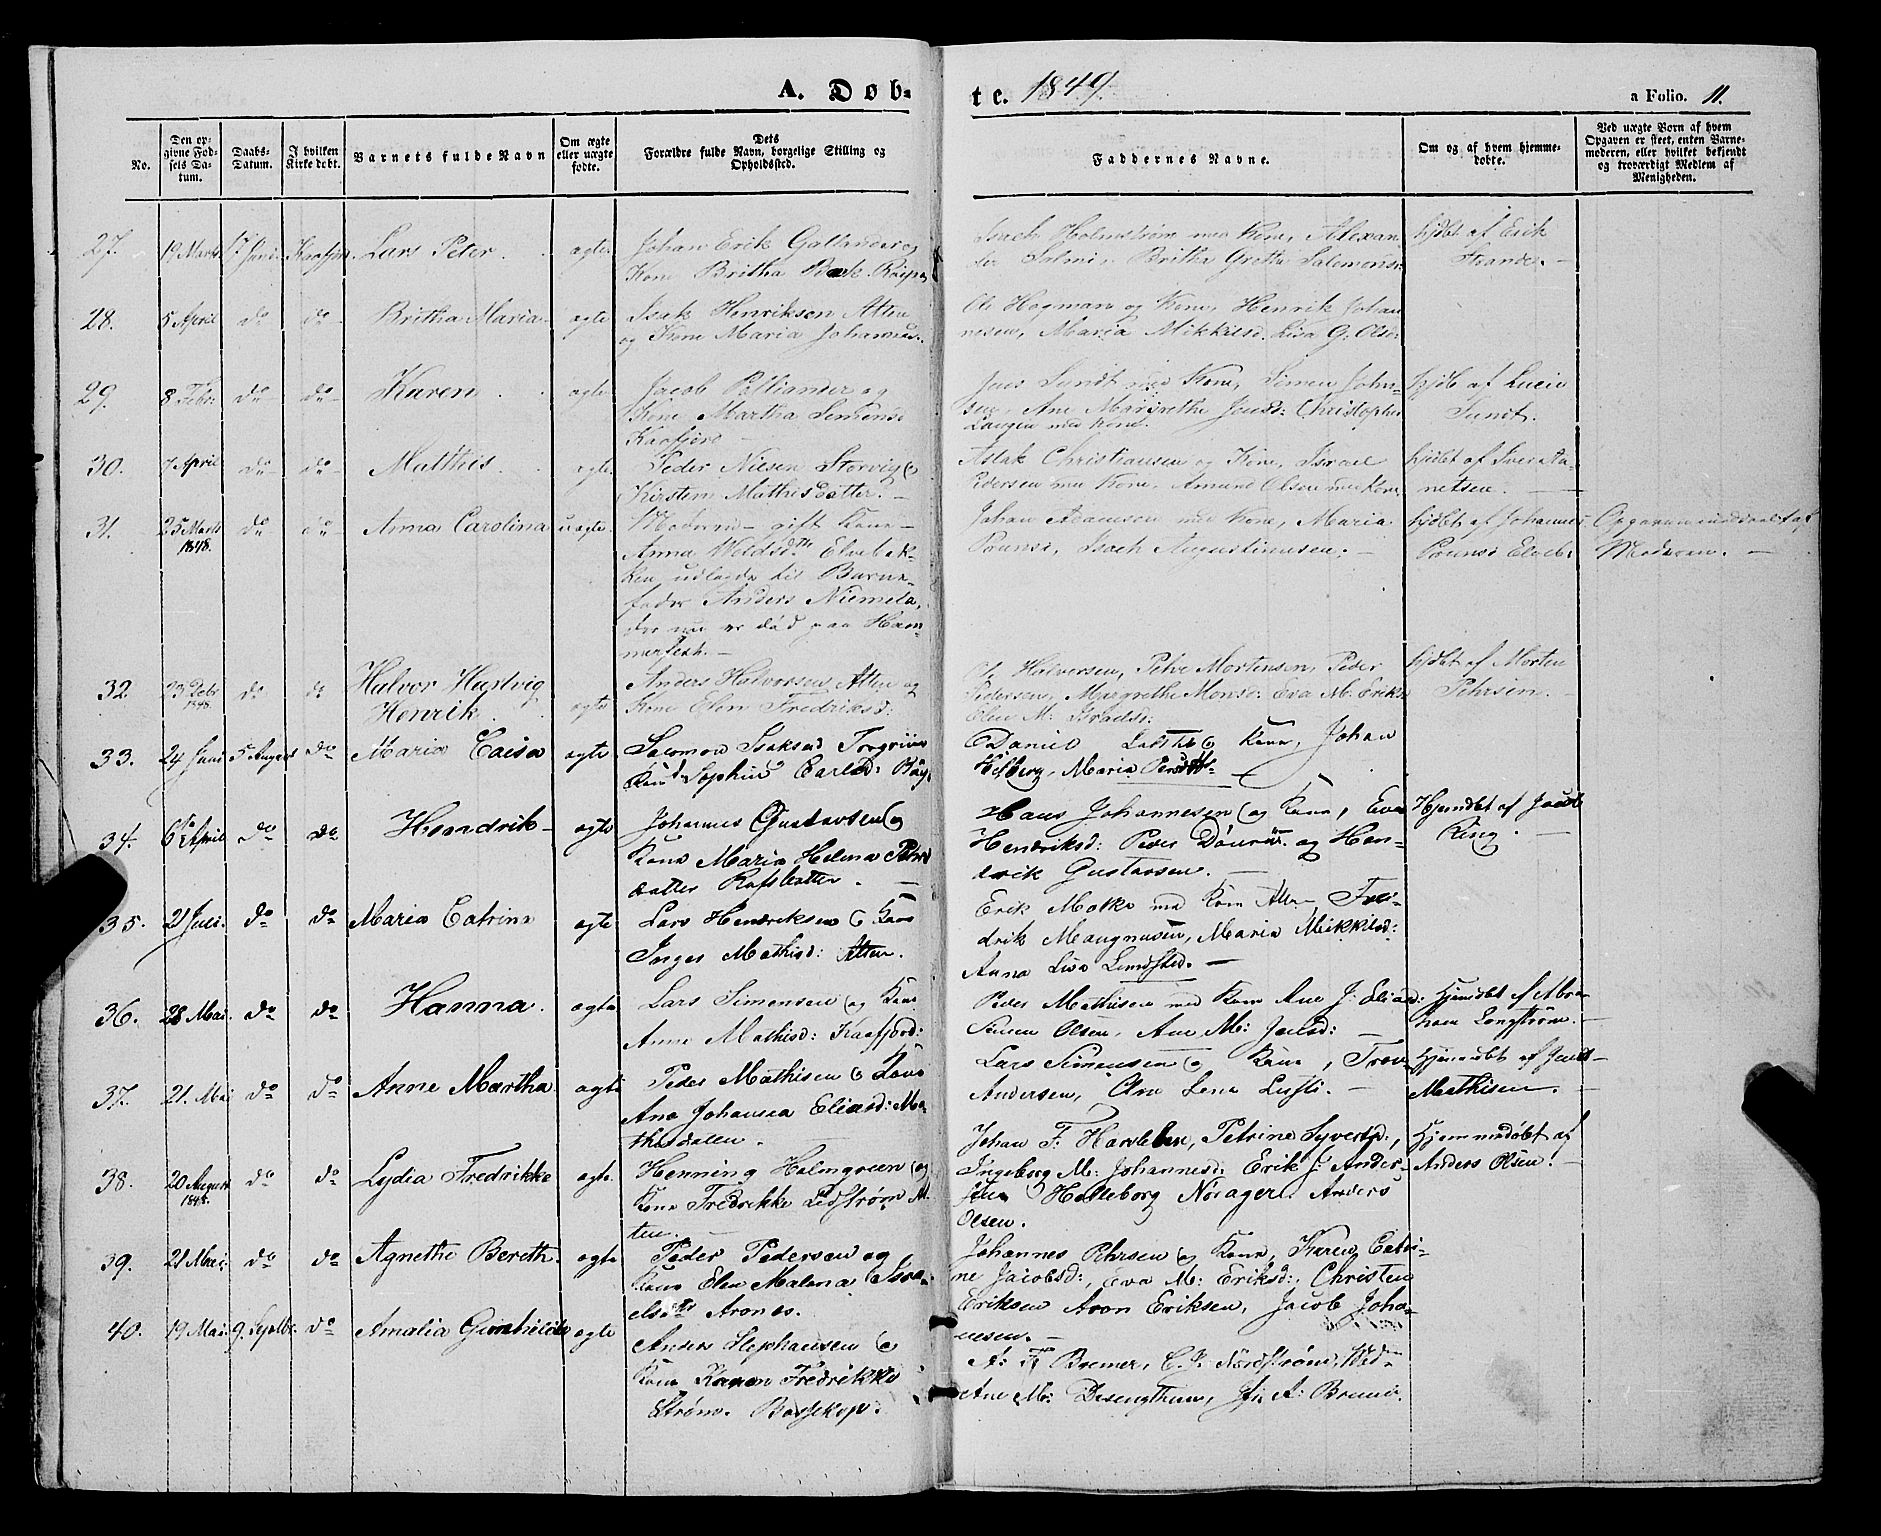 A. Døb-
te. 1849.
a Folio. 11.
No.
Den op-
givne Fød-
sels Da-
tum.
Daabs-
Datum.
I hvilken
Kirke døbt.
Barnets fulde Navn
Om ægte
eller uægte
fødte.
Dets
Forældre fulde Navn, borgelige Stilling og
Opholdssted.
Faddernes Navne.
Om og af hvem hjemme-
døbte.
Ved uægte Børn af hvem
Opgaven er skeet, enten Barne-
moderen, eller hvilket bekjendt
og troværdigt Medlem af
Menigheden.
27. 19 Marts 17 Juni Kaafjor. Lars Peter. ægte
Johan Erik Gallander og
Kone Britha Bæk. Raipas
Isach Holmstrøm med Kone, Alexan
der Salmi, Britha Gretha Salomonsd:
hjdøbt af Erik
Strande.
28. 5 April do do Britha Maria ægte
Isak Henriksen Alten
og Kone Maria Johannesd.
Ole Hagman og Kone, Henrik Johan
nesen, Maria Mikkelsd. Lisa G. Olsd:
29. 8 Febr: do do Karen ægte
Jacob Pelliander og
Kone Martha Simonsd
Kaafjord
Jens Sundt med Kone, Simen John-
sen, Ane Margrethe Jensd: Christopher
Langen med Kone.
hjdøb af Lucie
Sundt.
30. 7 April do do Matthis. ægte
Peder Nilsen Storvig &
Kirsten Mathisdatter.
Aslak Christiansen og Kone, Israel
Pedersen med Kone, Amund Olsen med Kone.
hjdøbt af
netsen.
31. 25 Marts
1848.
do do Anna Carolina uægte.
Moderen gift Kone
Anna Woldsdtr Elvebak-
ken, udlagde til Barne-
fader Anders Niemela,
der nu er død paa Ham-
merfest.
Johan Adamsen med Kone, Maria
Pounsi, Isach Augustinussen.
hjdøbt af Johannes
Pounsi Elveb.
Opgaven meddeelt af
Moderen.
32. 23 Debr
1848.
do do Halvor Hartvig
Henrik. ægte
Anders Halvorsen Alten og
Kone Elen Fredriksd:
O. Halvorsen, Petre Mortensen, Peder
Pedersen, Margrethe Monsd: Eva M. Eriksd
Elen M: Israelsd:
hjdøbt af Morten
Pehrsen.
33. 24 Juni 5 August do Maria Caisa ægte
Salomon Isaksen
Kone Sophia Carlsd:
Daniel & Kone, Johan
Hesberg, Maria Persdtr
34. 6te April do do Hendrik ægte
Johannes Gustavsen og
Kone Maria Helena Pehrs
datter Rafsbatten.
Hans Johannesen og Kone, Eva
Hendriksd: Peder og Hen-
drik Gustavsen.
Hjemdøbt af Jacob
King.
35. 21 Juli. do do Maria Catrina ægte
Lars Hendriksen & Kone
Inger Mathisd: Alten.
Erik Molke med Kone Alten Fre-
drik Maugnusen, Maria Mikkelsd:
Anna Lisa Lundsted.
36. 28 Mai. do do Hanna. ægte
Lars Simonsen og Kone
Anne Mathisd: Kaafjord:
Peder Mathisen med Kone Ane J: Eliasd:
Simen Olsen, Ane M: Jensd:
Hjemdøbt af Abra-
ham Longstrøm.
37. 21. Mai do do Anne Martha ægte
Peder Mathisen & Kone
Ane Johanna Eliasd: Ma-
thisdalen.
Lars Simonsen og Kone,
Andersen, Lena
Hjemdøbt af
Mathisen.
38. 20 August
1848.
do do Lydia Fredrikke ægte.
Henning Holmgreen og
Kone Fredrikke Lidstrøm Al-
ten.
Johan F. Petrine Syvertsd.,
Ingeborg M: Johannesd: Erik J. Ander-
sen Norager. Anders
Olsen.
Hjemmedøbt af
Anders Olsen.
39. 21 Mai. do do Agnethe Bereth. ægte
Peder Pedersen og
Kone Elen Malena Isra-
elsdtr Aronæs.
Johannes Pehrsen og Kone, Karen Catri-
ne Jacobsd:, Eva M: Eriksd:, Christen
Eriksen Aron Eriksen, Jacob Joha-
nesen.
40. 19 Mai. 9. Septbr. do Amalia Gunhilde ægte
Anders Stephansen &
Kone Karen Fredrikke
Strøm. Bossekop.
A: F Bremer, C. P. Nordstrøm,
Ane M: A: